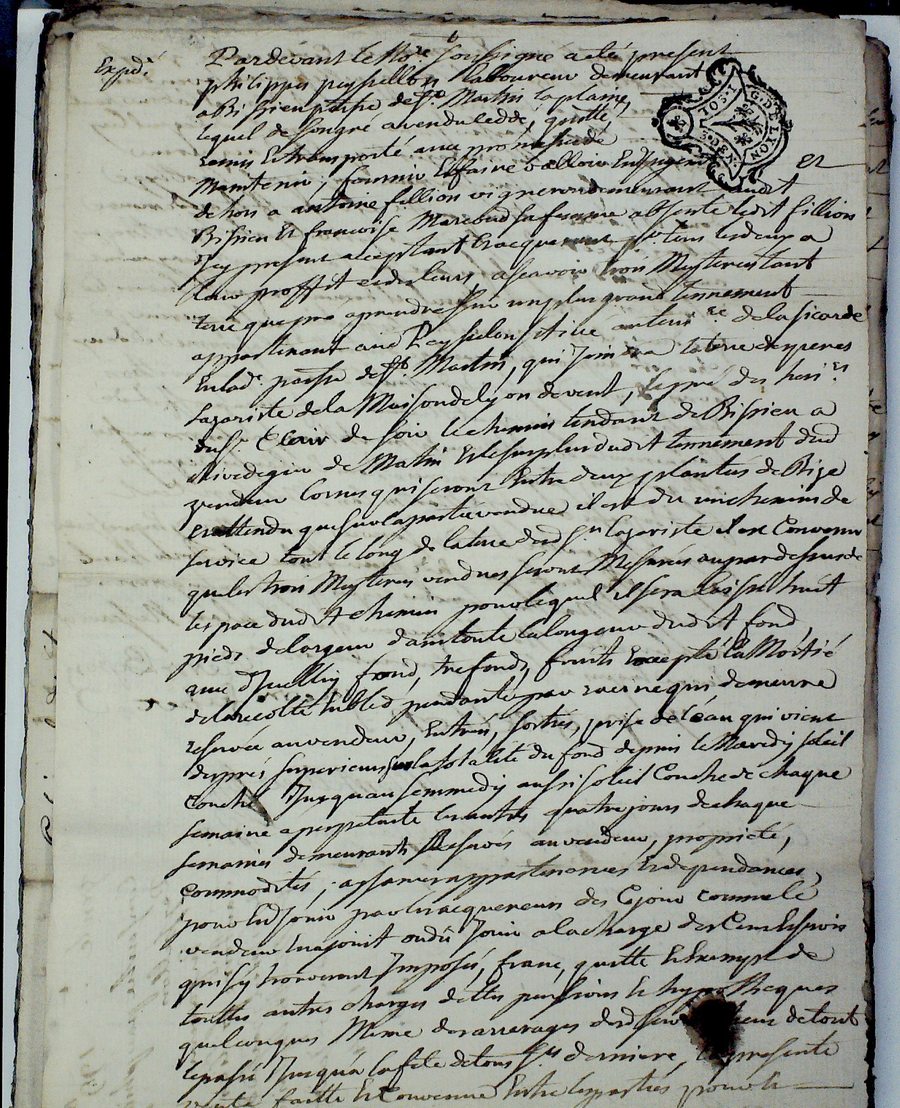 Expdié
Pardevant le No.re soussigné a été présent
philippe peysellon Laboureur demeurant
a Bissieu parsse de St. Martin la plaine,
lequel de son gré a vendu cédé, quitté,
remis et transporté avec promesse de
Maintenir, fournir et faire valloir en jugement et
dehors a antoine fillion vigneron demeurant audit
Bissieu et francoise sa femme absente ledit fillion
Icy present acceptant et acquerant pr. tous les deux a
leur proffit et des leurs a scavoir trois Mesterées tant
terre que pra a prendre sur un plus grand tennement
appartenant audt Peyssellon situé au terri.re de la sicarde
en lad. parsse de St. Martin, qui joint la terre de
Lazariste de la Maison de Lyon de vent, le pré des heri.rs
du Sr. Clair de soir le chemin tendant de Bissieu a
Rivedegier de Matin et le surplus dudit tennement dud
vendeur Bornes qui seront entre deux plantées de Bize
et attendu que sur la partie vendue il est du un chemin de
service tout le long de la terre desd Srs lazariste il est Convenu
que les trois Mesterées vendues seront Mesurées au par dessus de
l'espace dudit chemin pour lequel il sera laissé huit
pieds de largeur dans toute la longueur dudit fond
avec d'Iceluy fond, tres fond, fruits excepté la Moitié
de la recolte en bled pendante par racine qui demeure
reservée au vendeur, Entrées, sorties, prise de l'eau qui vient
des prés superieurs sur la totalité du fond depuis le Mercredy soleil
Couché Jusqu'au semmedy aussi soleil Couché de chaque
semaine a perpetuité les autres quatre jours de chaque
semaines demeurants Reservés au vendeur, propriété,
Commodités, aisances appartenances et dependances,
pour en Jouir par les acquereurs des Ce jour Comme le
vendeur en a joüit ou dû Jouir a la charge des Cens et servis
qui s'y trouveront Imposés, franc, quitte et exempt de
touttes autres charges dettes pensions et hypotheques
quelconques Même des arrerages desd servis de tout
le passé Jusqu'a la fete de tous Sts. derniere, la presente
vente faitte et Convenue Entre les parties pour le
G. DE LYON
2 SOLS